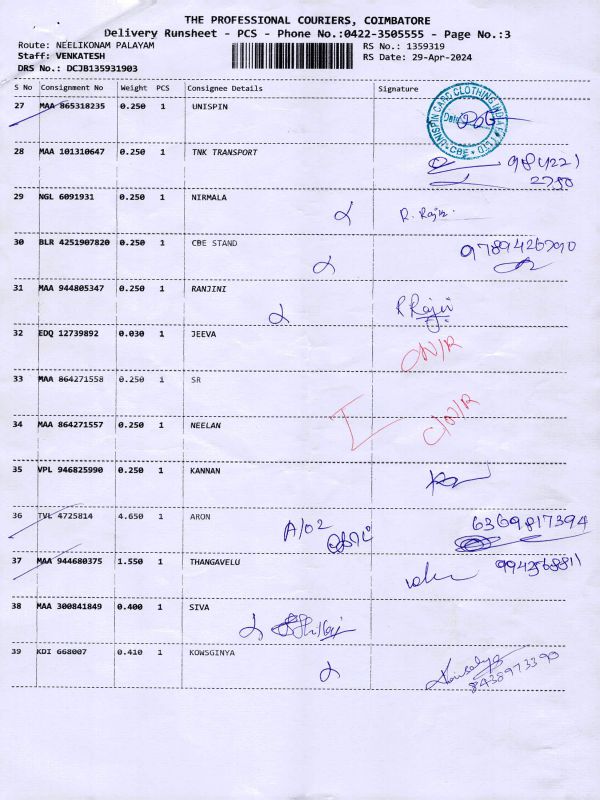 THE PROFESSIONAL COURIERS, COIMBATORE
Delivery Runsheet - PCS - Phone No.:0422-3505555 - Page No.:3
Route: NEELIKONAM PALAYAM RS No.: 1359319
Staff: VENKATESH RS Date: 29-Apr-2024
DRS No.: DCJB135931903
S No Consignment No Weight PCS Consignee Details Signature
27 MAA 865318235 0.250 1 UNISPIN
28 MAA 101310647 0.250 1 TNK TRANSPORT
29 NGL 6091931 0.250 1 NIRMALA R. Raja.
30 BLR 4251907820 0.250 1 CBE STAND
31 MAA 944805347 0.250 1 RANJINI
32 EDQ 12739892 0.030 1 JEEVA
33 MAA 864271558 0.250 1 SR
34 MAA 864271557 0.250 1 NEELAN C/N/R
35 VPL 946825990 0.250 1 KANNAN
36 TVL 4725814 4.650 1 ARON A/02 6369817394
37 MAA 944680375 1.550 1 THANGAVELU
38 MAA 300841849 0.400 1 SIVA
39 KDI 668007 0.410 1 KOWSGINYA Kowsalya
8438973390